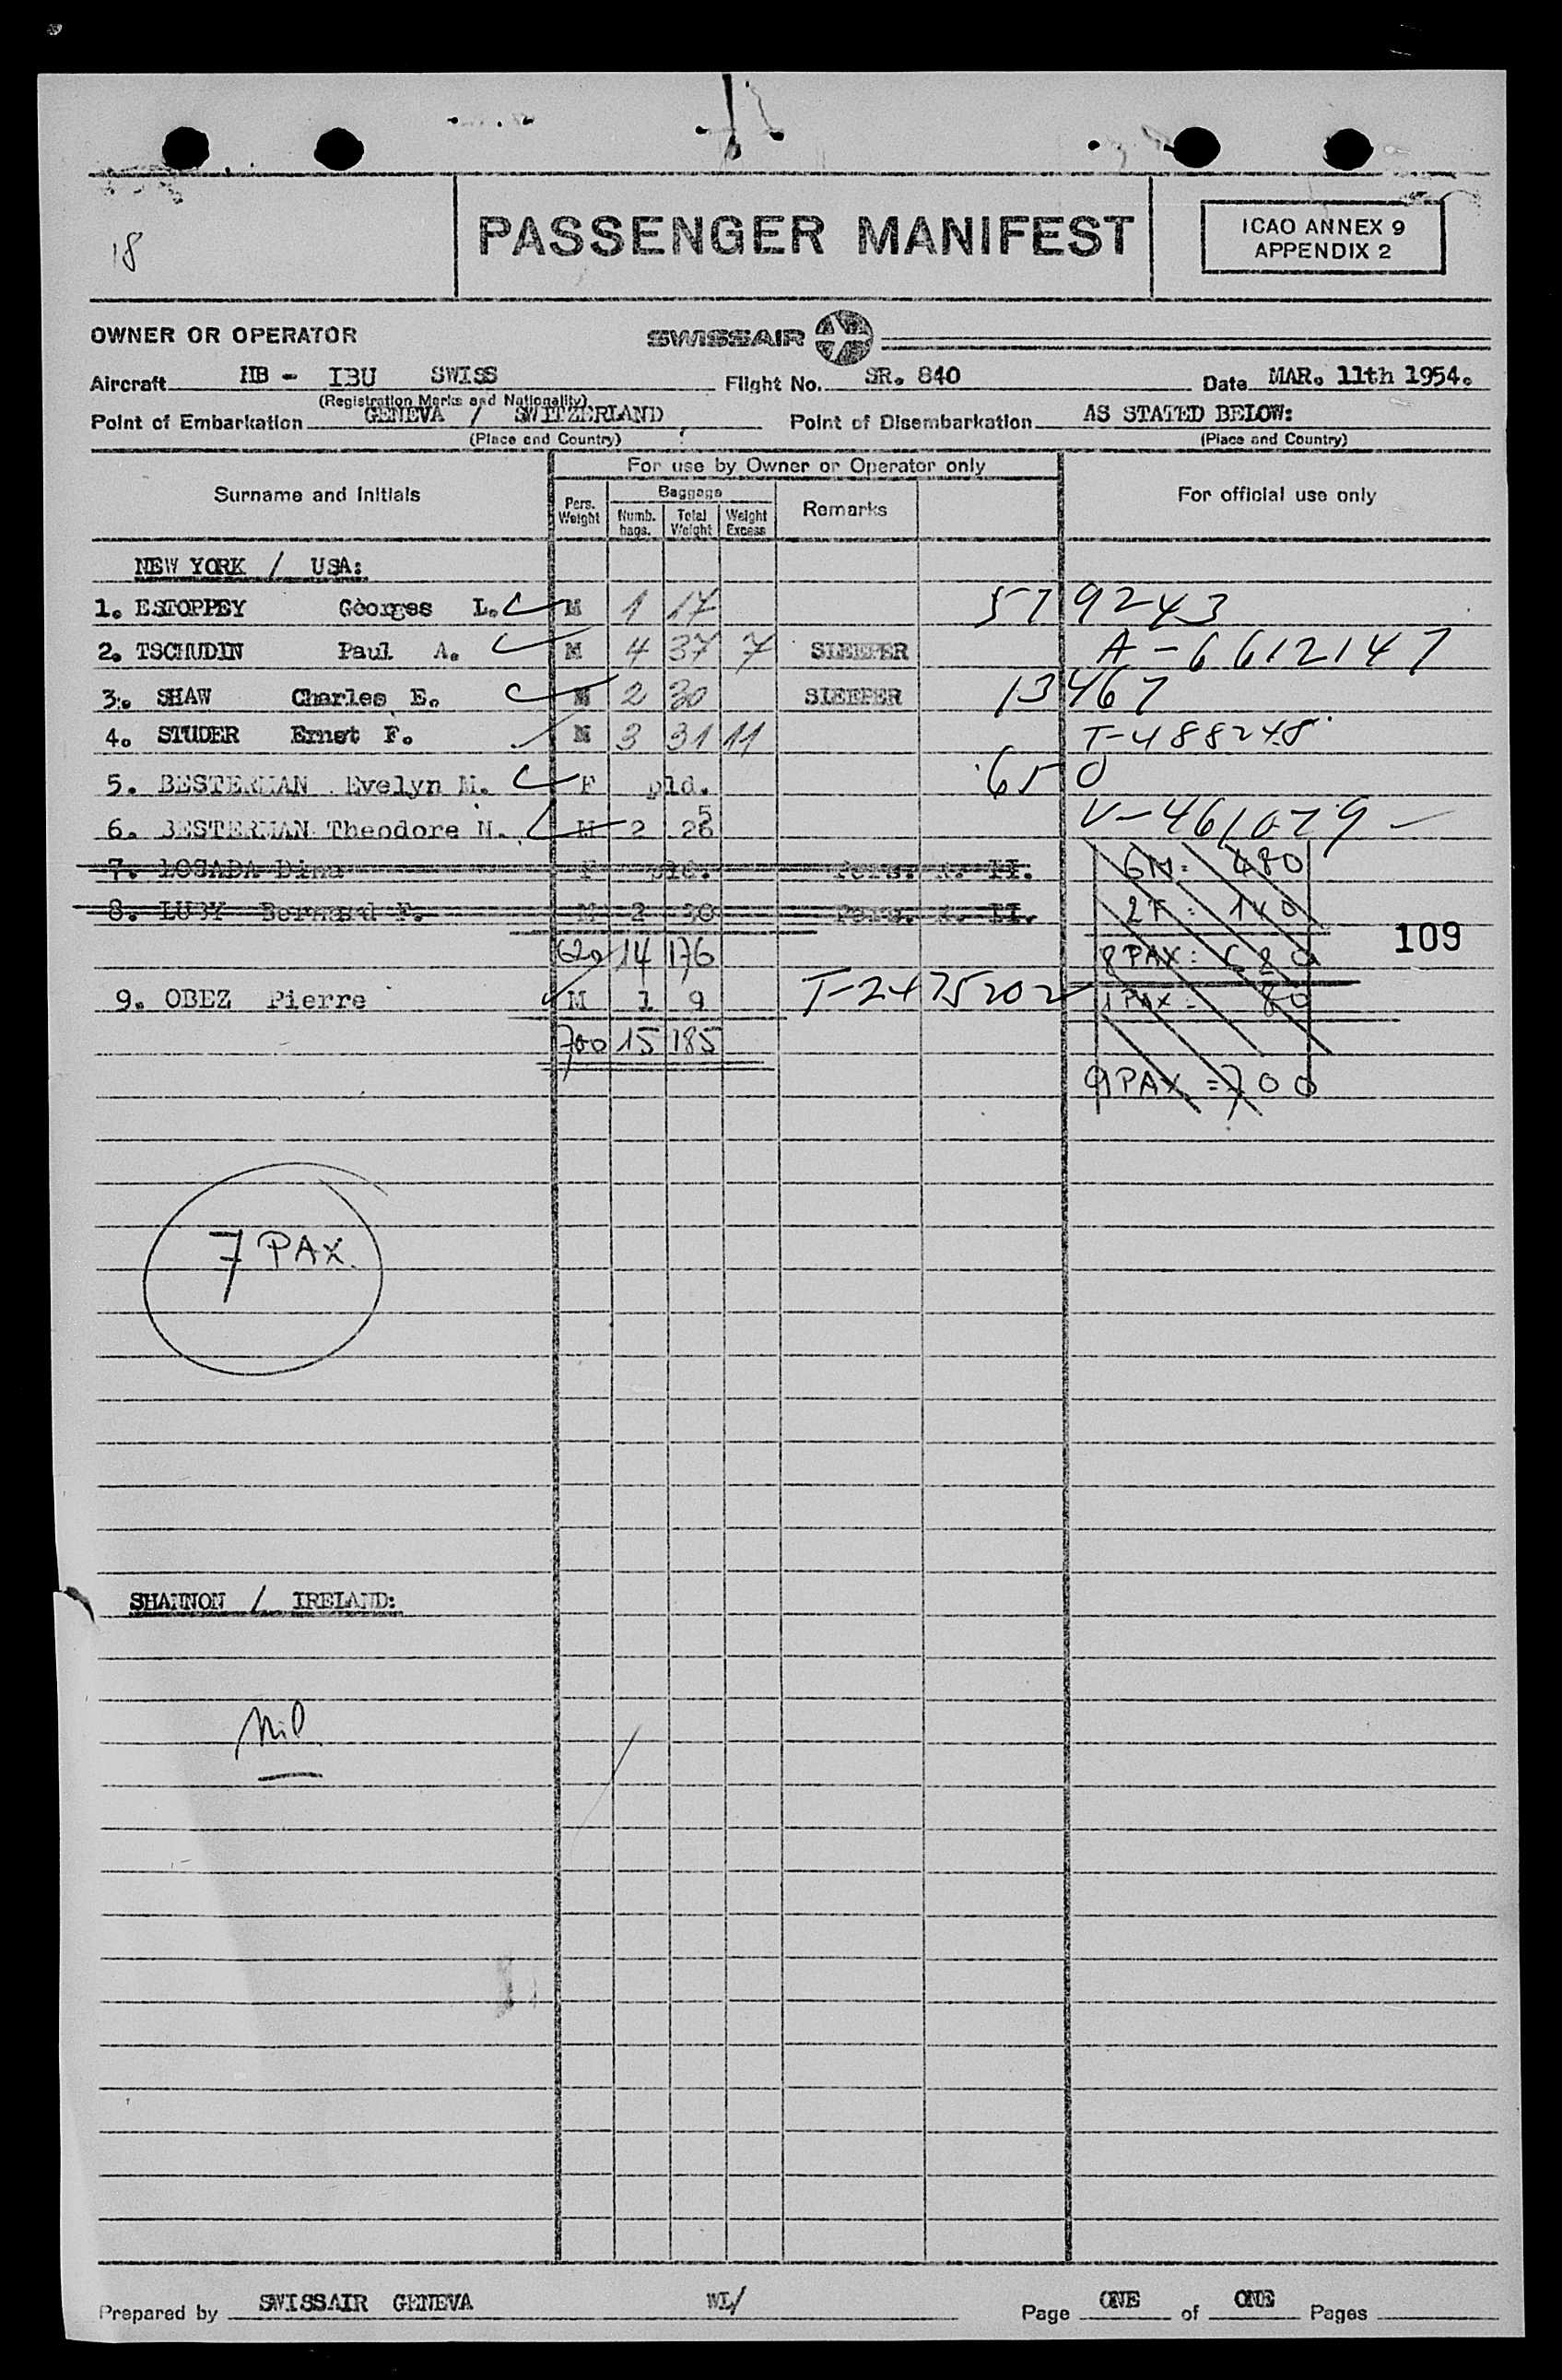 18
PASSENGER MANIFEST
ICAO ANNEX 9
APPENDIX 2
OWNER OR OPERATOR SWISSAIR
Aircraft HB - IBU SWISS Flight No. SR. 840 Date MAR. 11th 1954.
(Registration Marks and Nationality)
Point of Embarkation GENEVA / SWITZERLAND Point of Disembarkation AS STATED BELOW:
(Place and Country) (Place and Country)
For use by Owner or Operator only
Surname and Initials Pers. Weight Baggage Numb. bags. Total Weight Weight Excess Remarks For official use only
NEW YORK / USA:
1. ESTOPPEY Georges L. M 1 17 579243
2. TSCHUDIN Paul A. M 4 37 7 SLEEPER A-6612147
3. SHAW Charles E. M 2 30 SLEEPER 13467
4. STUDER Ernst F. M 3 31 11 T-488248
5. BESTERMAN Evelyn M. F pld. 650
6. BESTERMAN Theodore N. M 2 28 5 V-461079
7. LOSADA Dina F pld. 6M: 480
8. LUBY Bernard F. M 2 30 2F: 140
109
620 14 176 8 PAX: 620
9. OBEZ Pierre M 1 9 T-2475202 1 PAX = 80
700 15 185
9 PAX = 700
7 PAX.
SHANNON / IRELAND:
Nil
Prepared by SWISSAIR GENEVA WL/ Page ONE of ONE Pages